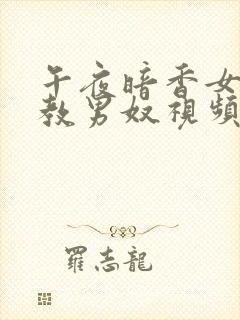 午夜暗香女
教男奴視頻
羅志龍